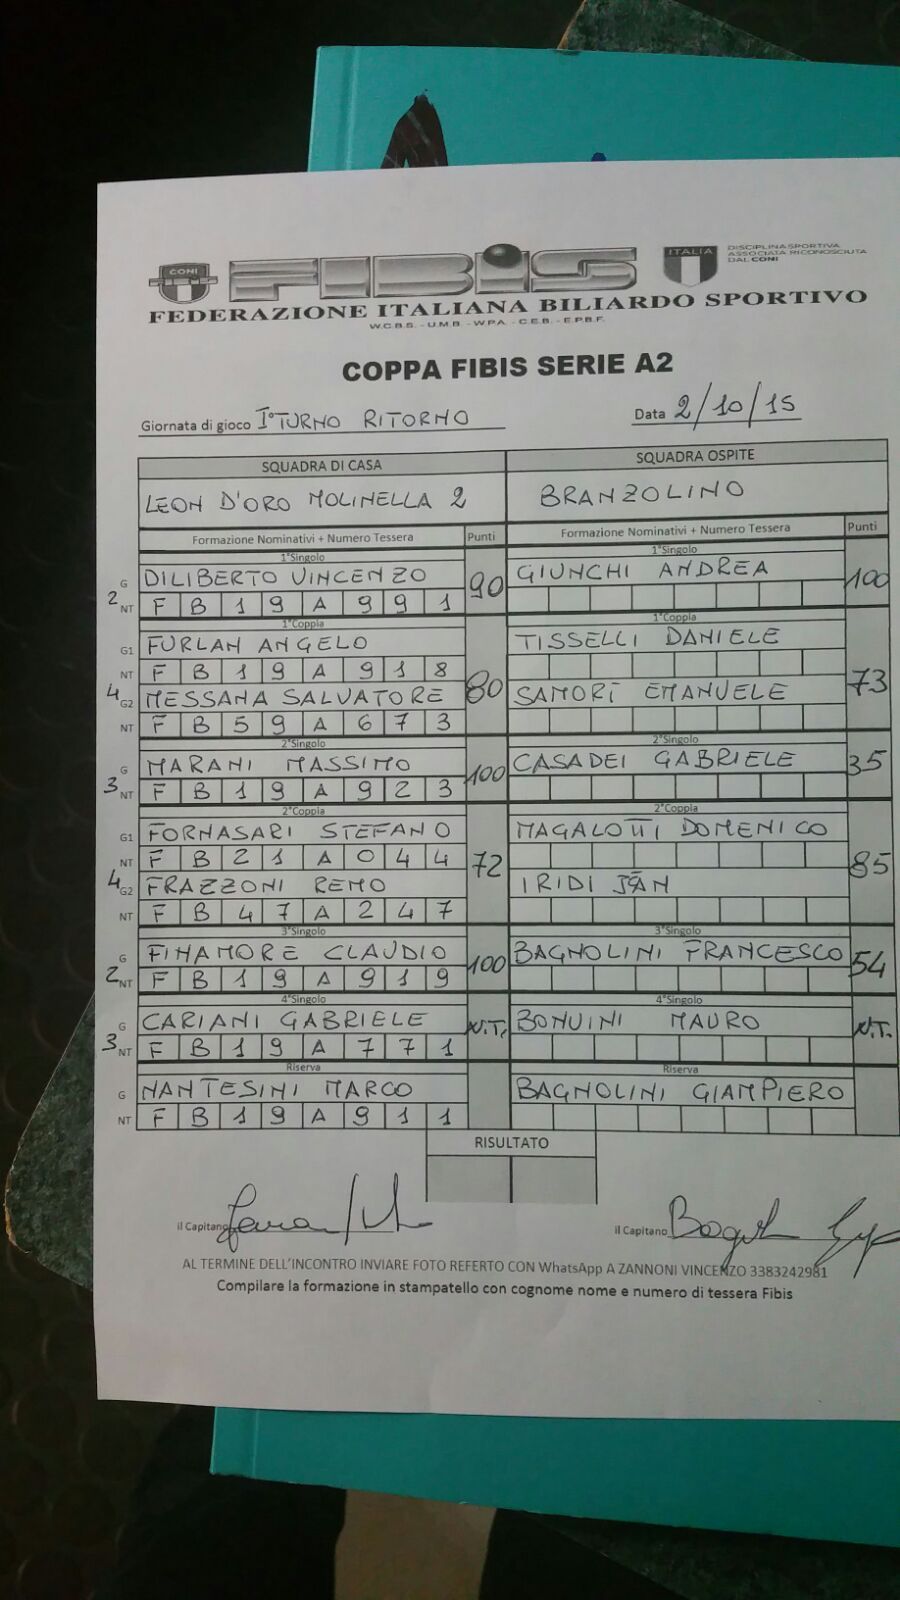 CONI
FIBIS
ITALIA
DISCIPLINA SPORTIVA
ASSOCIATA RICONOSCIUTA
DAL CONI
FEDERAZIONE ITALIANA BILIARDO SPORTIVO
W.C.B.S. - U.M.B. - W.P.A. - C.E.B. - E.P.B.F.
COPPA FIBIS SERIE A2
Giornata di gioco I° TURNO RITORNO Data 2/10/15
SQUADRA DI CASA SQUADRA OSPITE
LEON D'ORO MOLINELLA 2 BRANZOLINO
Formazione Nominativi + Numero Tessera Punti Formazione Nominativi + Numero Tessera Punti
1°Singolo 1°Singolo
G DILIBERTO VINCENZO 90 GIUNCHI ANDREA 100
2 NT F B 1 9 A 9 9 1
1°Coppia 1°Coppia
G1 FURLAN ANGELO TISSELLI DANIELE
NT F B 1 9 A 9 1 8 80 73
4 G2 MESSANA SALVATORE SAMORÍ EMANUELE
NT F B 5 9 A 6 7 3
2°Singolo 2°Singolo
G MARANI MASSIMO 100 CASADEI GABRIELE 35
3 NT F B 1 9 A 9 2 3
2°Coppia 2°Coppia
G1 FORNASARI STEFANO MAGALOTTI DOMENICO
NT F B 2 1 A 0 4 4 72 85
4 G2 FRAZZONI REMO IRIDI JÃN
NT F B 4 7 A 2 4 7
3°Singolo 3°Singolo
G FINAMORE CLAUDIO 100 BAGNOLINI FRANCESCO 54
2 NT F B 1 9 A 9 1 9
4°Singolo 4°Singolo
G CARIANI GABRIELE N.T. BONVINI MAURO N.T.
3 NT F B 1 9 A 7 7 1
Riserva Riserva
G NANTESINI MARCO BAGNOLINI GIAMPIERO
NT F B 1 9 A 9 1 1
RISULTATO
il Capitano il Capitano
AL TERMINE DELL'INCONTRO INVIARE FOTO REFERTO CON WhatsApp A ZANNONI VINCENZO 3383242981
Compilare la formazione in stampatello con cognome nome e numero di tessera Fibis